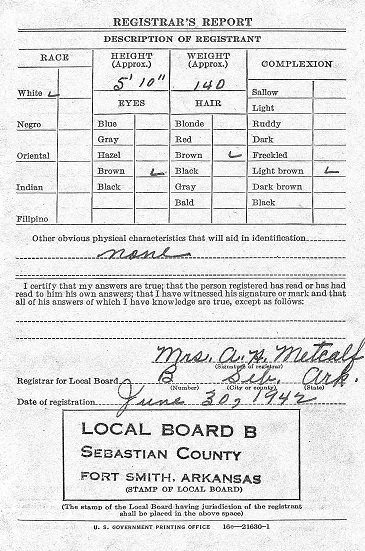 REGISTRAR'S REPORT
DESCRIPTION OF REGISTRANT
RACE HEIGHT (Approx.) WEIGHT (Approx.) COMPLEXION
5' 10" 140
White ✓ Sallow
EYES HAIR Light
Negro Blue Blonde Ruddy
Gray Red Dark
Oriental Hazel Brown ✓ Freckled
Brown ✓ Black Light brown ✓
Indian Black Gray Dark brown
Bald Black
Filipino
Other obvious physical characteristics that will aid in identification
none
I certify that my answers are true; that the person registered has read or has had
read to him his own answers; that I have witnessed his signature or mark and that
all of his answers of which I have knowledge are true, except as follows:
Mrs. A. H. Metcalf
(Signature of registrar)
Registrar for Local Board B Seb. Ark.
(Number) (City or county) (State)
Date of registration June 30, 1942
LOCAL BOARD B
SEBASTIAN COUNTY
FORT SMITH, ARKANSAS
(STAMP OF LOCAL BOARD)
(The stamp of the Local Board having jurisdiction of the registrant
shall be placed in the above space)
U. S. GOVERNMENT PRINTING OFFICE 16—21630-1